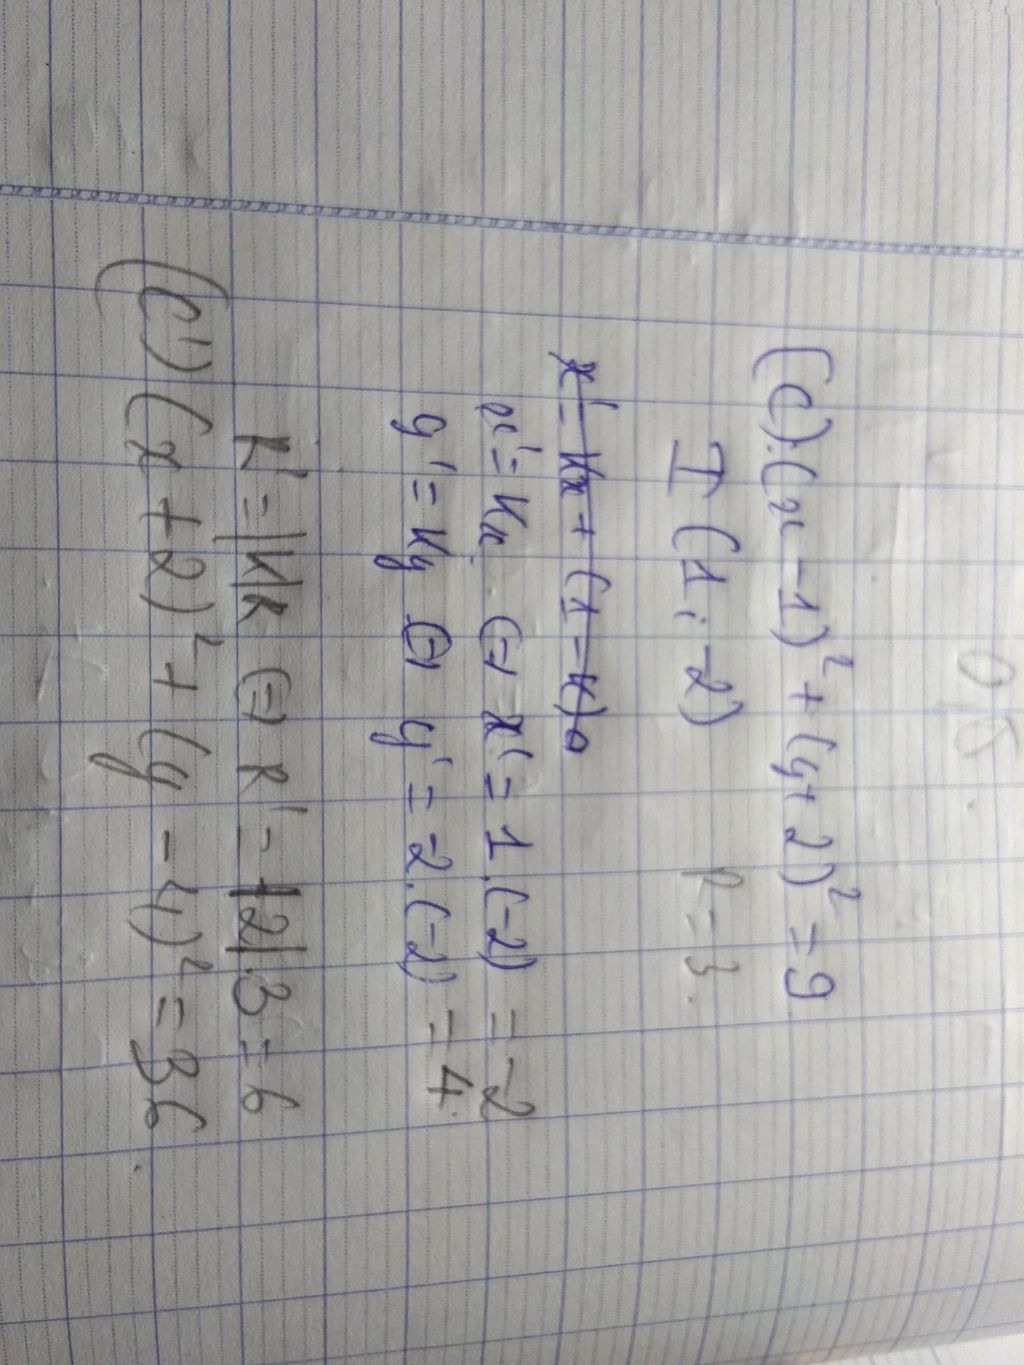 0,5
(C): (x - 1)² + (y + 2)² = 9
I (1; -2) R = 3.
x' = kx + (1 - k)a
x' = kx ⇔ x' = 1.(-2) = -2
y' = ky ⇔ y' = -2.(-2) = 4.
R' = |k|R ⇔ R' = |-2|.3 = 6
(C') (x + 2)² + (y - 4)² = 36.